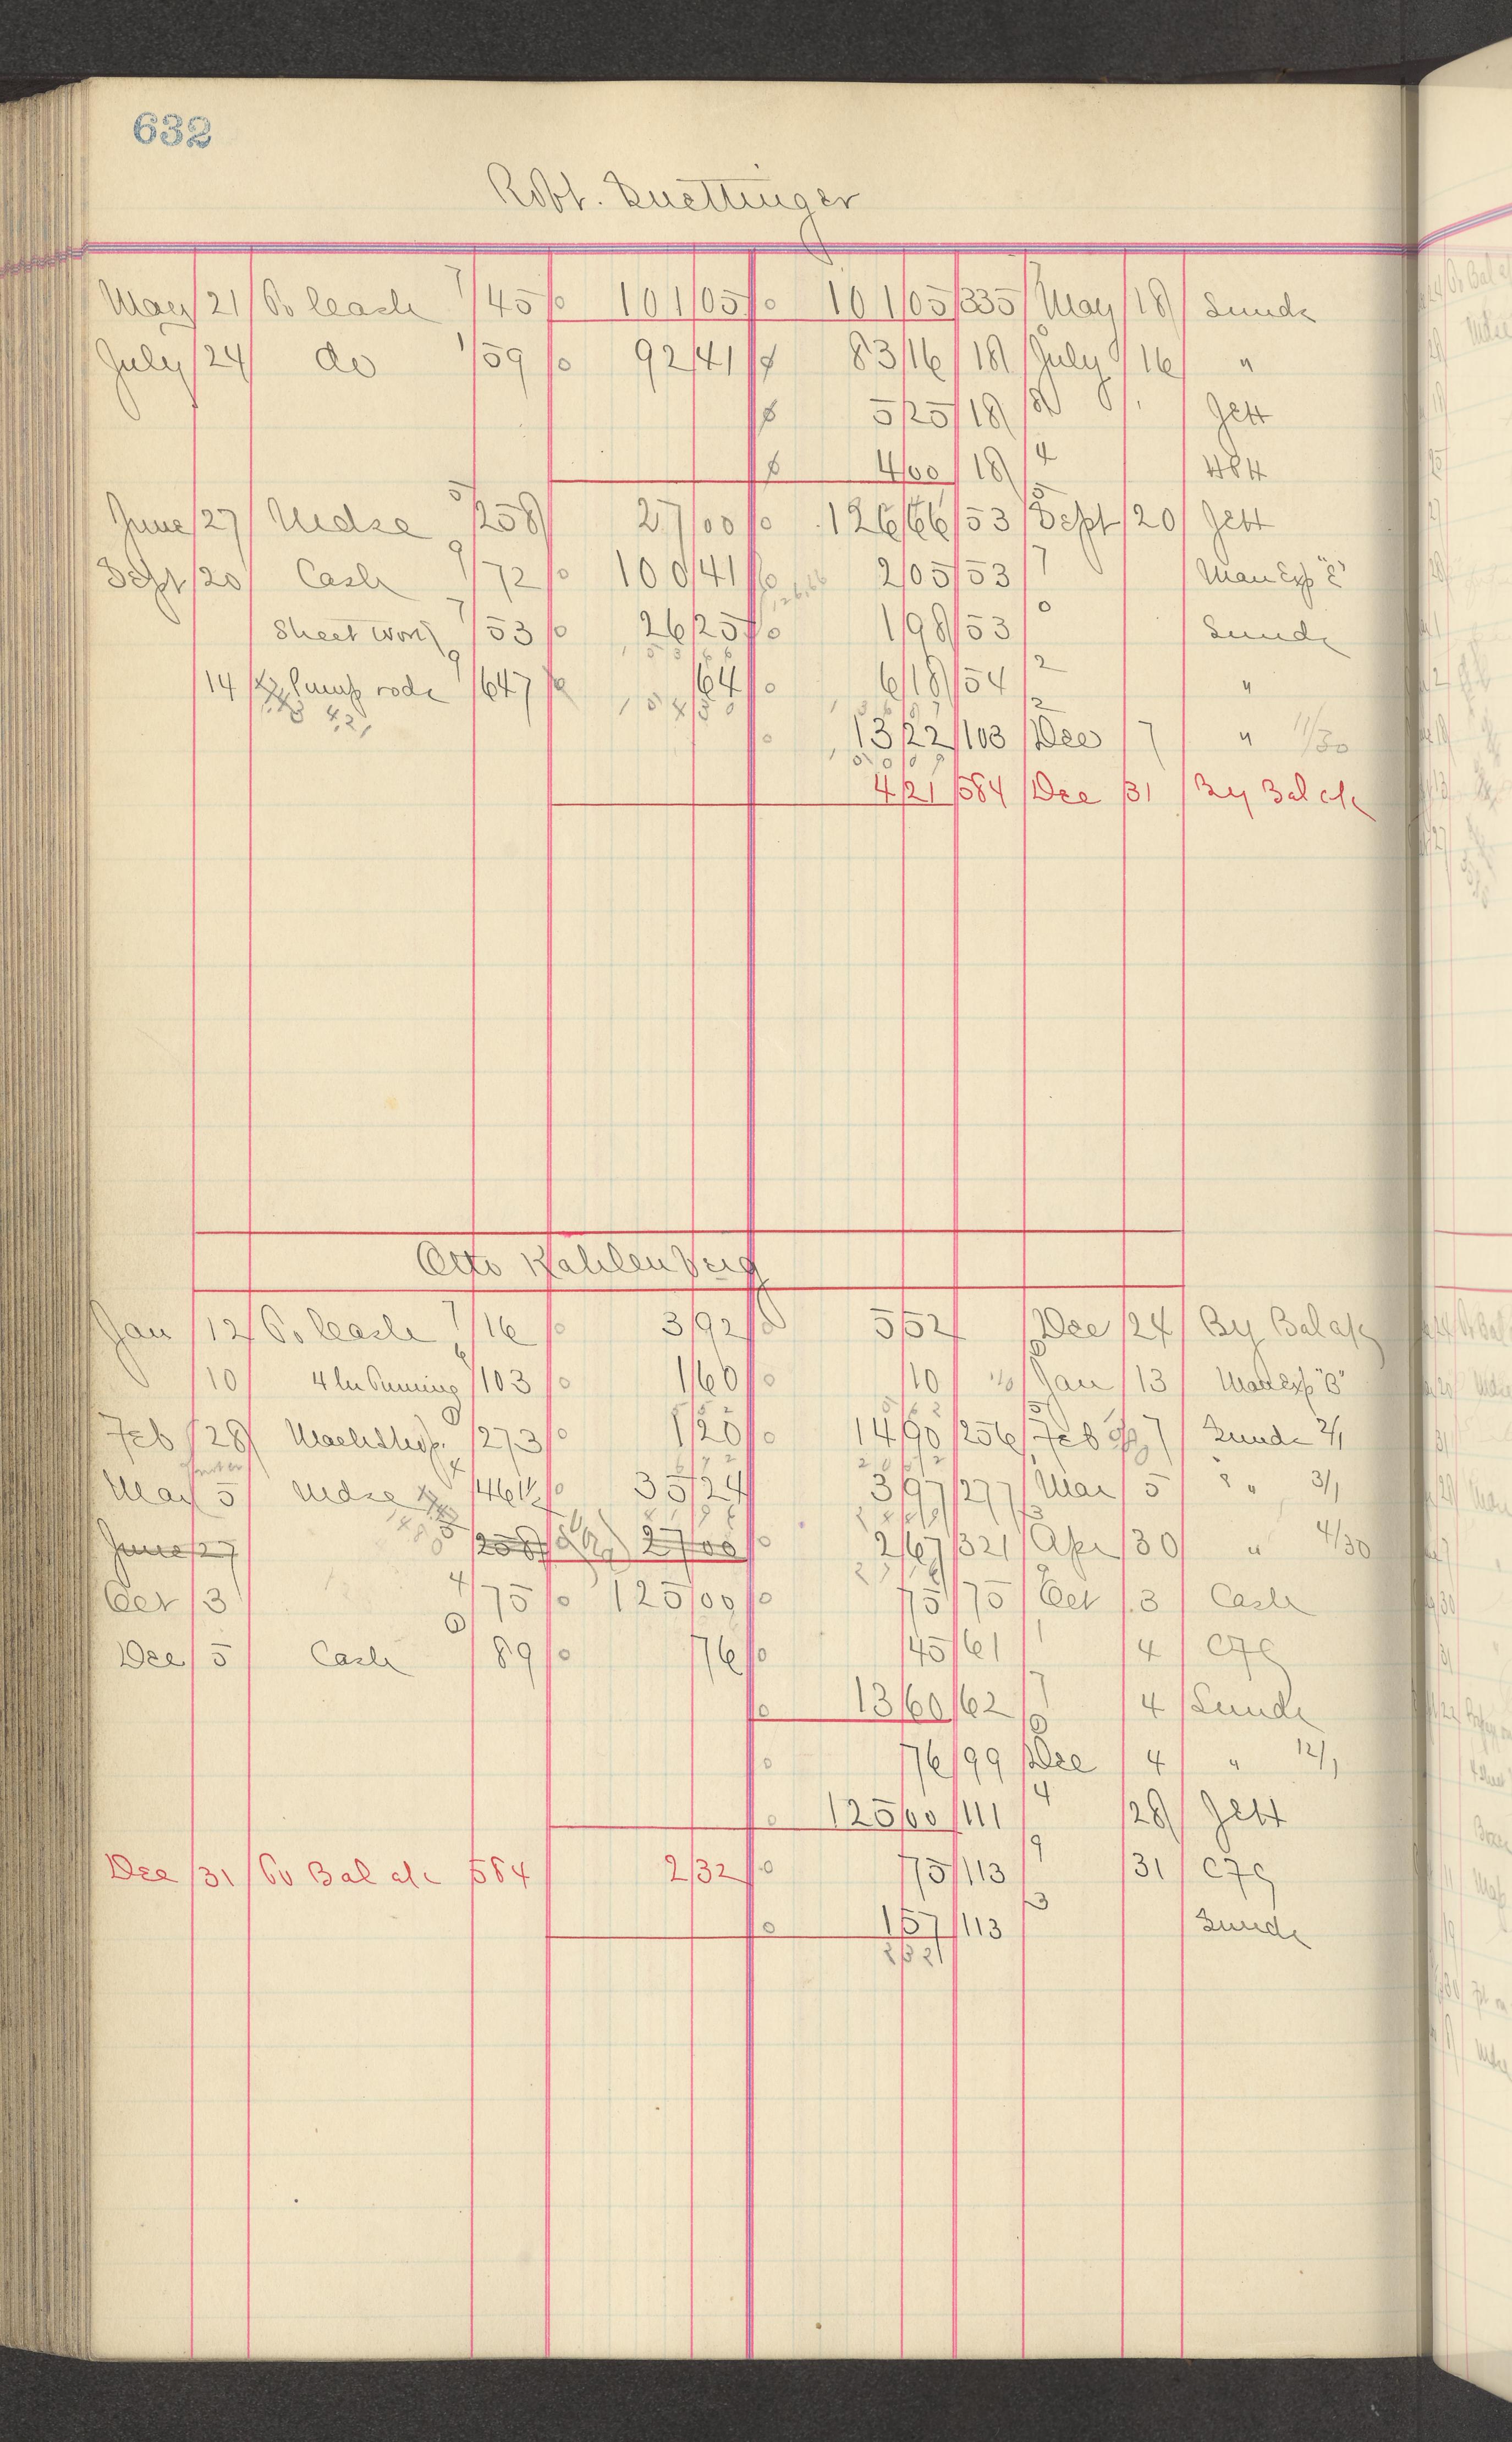 632
Robt. Zuettinger
May 21 To Cash 7 45 101 05 101 05 335 7 May 18 Sunds
July 24 do 1 59 92 41 83 16 18 July 16 "
5 25 18 8 Jett
4 00 18 4 484
June 27 Mdse 5 258 27 00 126 66 53 5 Sept 20 Jett
Sept 20 Cash 9 72 100 41 2 05 53 7 Man Exp "E"
126.66
Sheet Work 7 53 26 25 1 98 53 0 Sunds
153 66
14 Pump rode 9 647 64 6 18 54 2 "
154 30
13 22 103 2 Dec 7 " 11/30
4 21 584 Dec 31 By Bal c/c
Otto Kahlenberg
Jan 12 To Cash 7 16 3 92 5 52 Dec 24 By Bal a/c
10 4 hr Running 6 103 1 60 10 10 Jan 13 Man Exp "C"
Feb 28 Mach Shop. 0 273 1 20 14 90 256 5 Feb 7 Sunds 2/1
Mar 5 Mdse 4 461½ 35 24 3 97 277 Mar 5 " 3/1
June 27 5 258 27 00 2 67 321 3 Apr 30 " 4/30
Oct 3 4 75 125 00 75 75 Oct 3 Cash
Dec 5 Cash 0 89 76 45 61 1 4 C7C
13 60 62 7 4 Sunds
76 99 0 Dec 4 " 12/1
125 00 111 4 28 Jett
Dec 31 To Bal c/c 584 2 32 75 113 9 31 C7C
1 57 113 3 Sunds
2 32